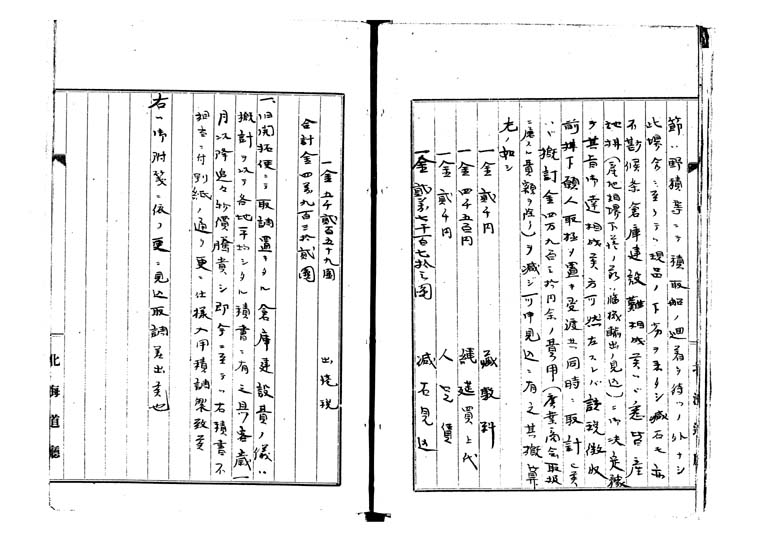 節ハ野積等ニテ積取船ノ廻着ヲ待ツノ外ナシ
此場合ニ至リテハ現品ノ下劣ヲ来タシ減石モ亦
不尠候条倉庫建設難相成候ハヽ悉皆産
地払(産地相場下落ノ分臨機輸出ノ見込)ニ御決定
ヲ其旨御達相成候方可然左スレバ諸税徴収
前払下願人取極メ置キ受渡共同時ニ取計
ハヽ概計金四万九百三拾円余ノ費用(広業商会取扱
ニ属スル費額ヲ除ク)ヲ減ジ可申見込ニ有之其概算
左ノ如シ
一金貳千円 蔵敷料
一金四千五百円 縄莚買上代
一金貳千円 人足賃
一金貳万七千百七拾三円 減石見込
一金五千貳百五十九円 出港税
合計金四万九百三拾貳円
一、旧開拓使ニテ取調置キタル倉庫建設費ノ儀ハ
概計ヲ以テ各地平均シタル積書ニ有之且客歳一
月以降追々物価騰貴シ即今ニ至テハ右積書不
相立ニ付別紙ノ通リ更ニ仕様入用積調製致候
右ハ御附箋ニ依リ更ニ見込取調差出候也
北海道廳